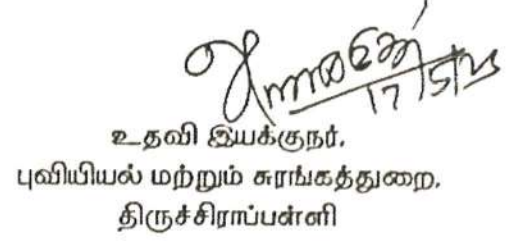 17/5/23
உதவி இயக்குநர்,
புவியியல் மற்றும் சுரங்கத்துறை,
திருச்சிராப்பள்ளி